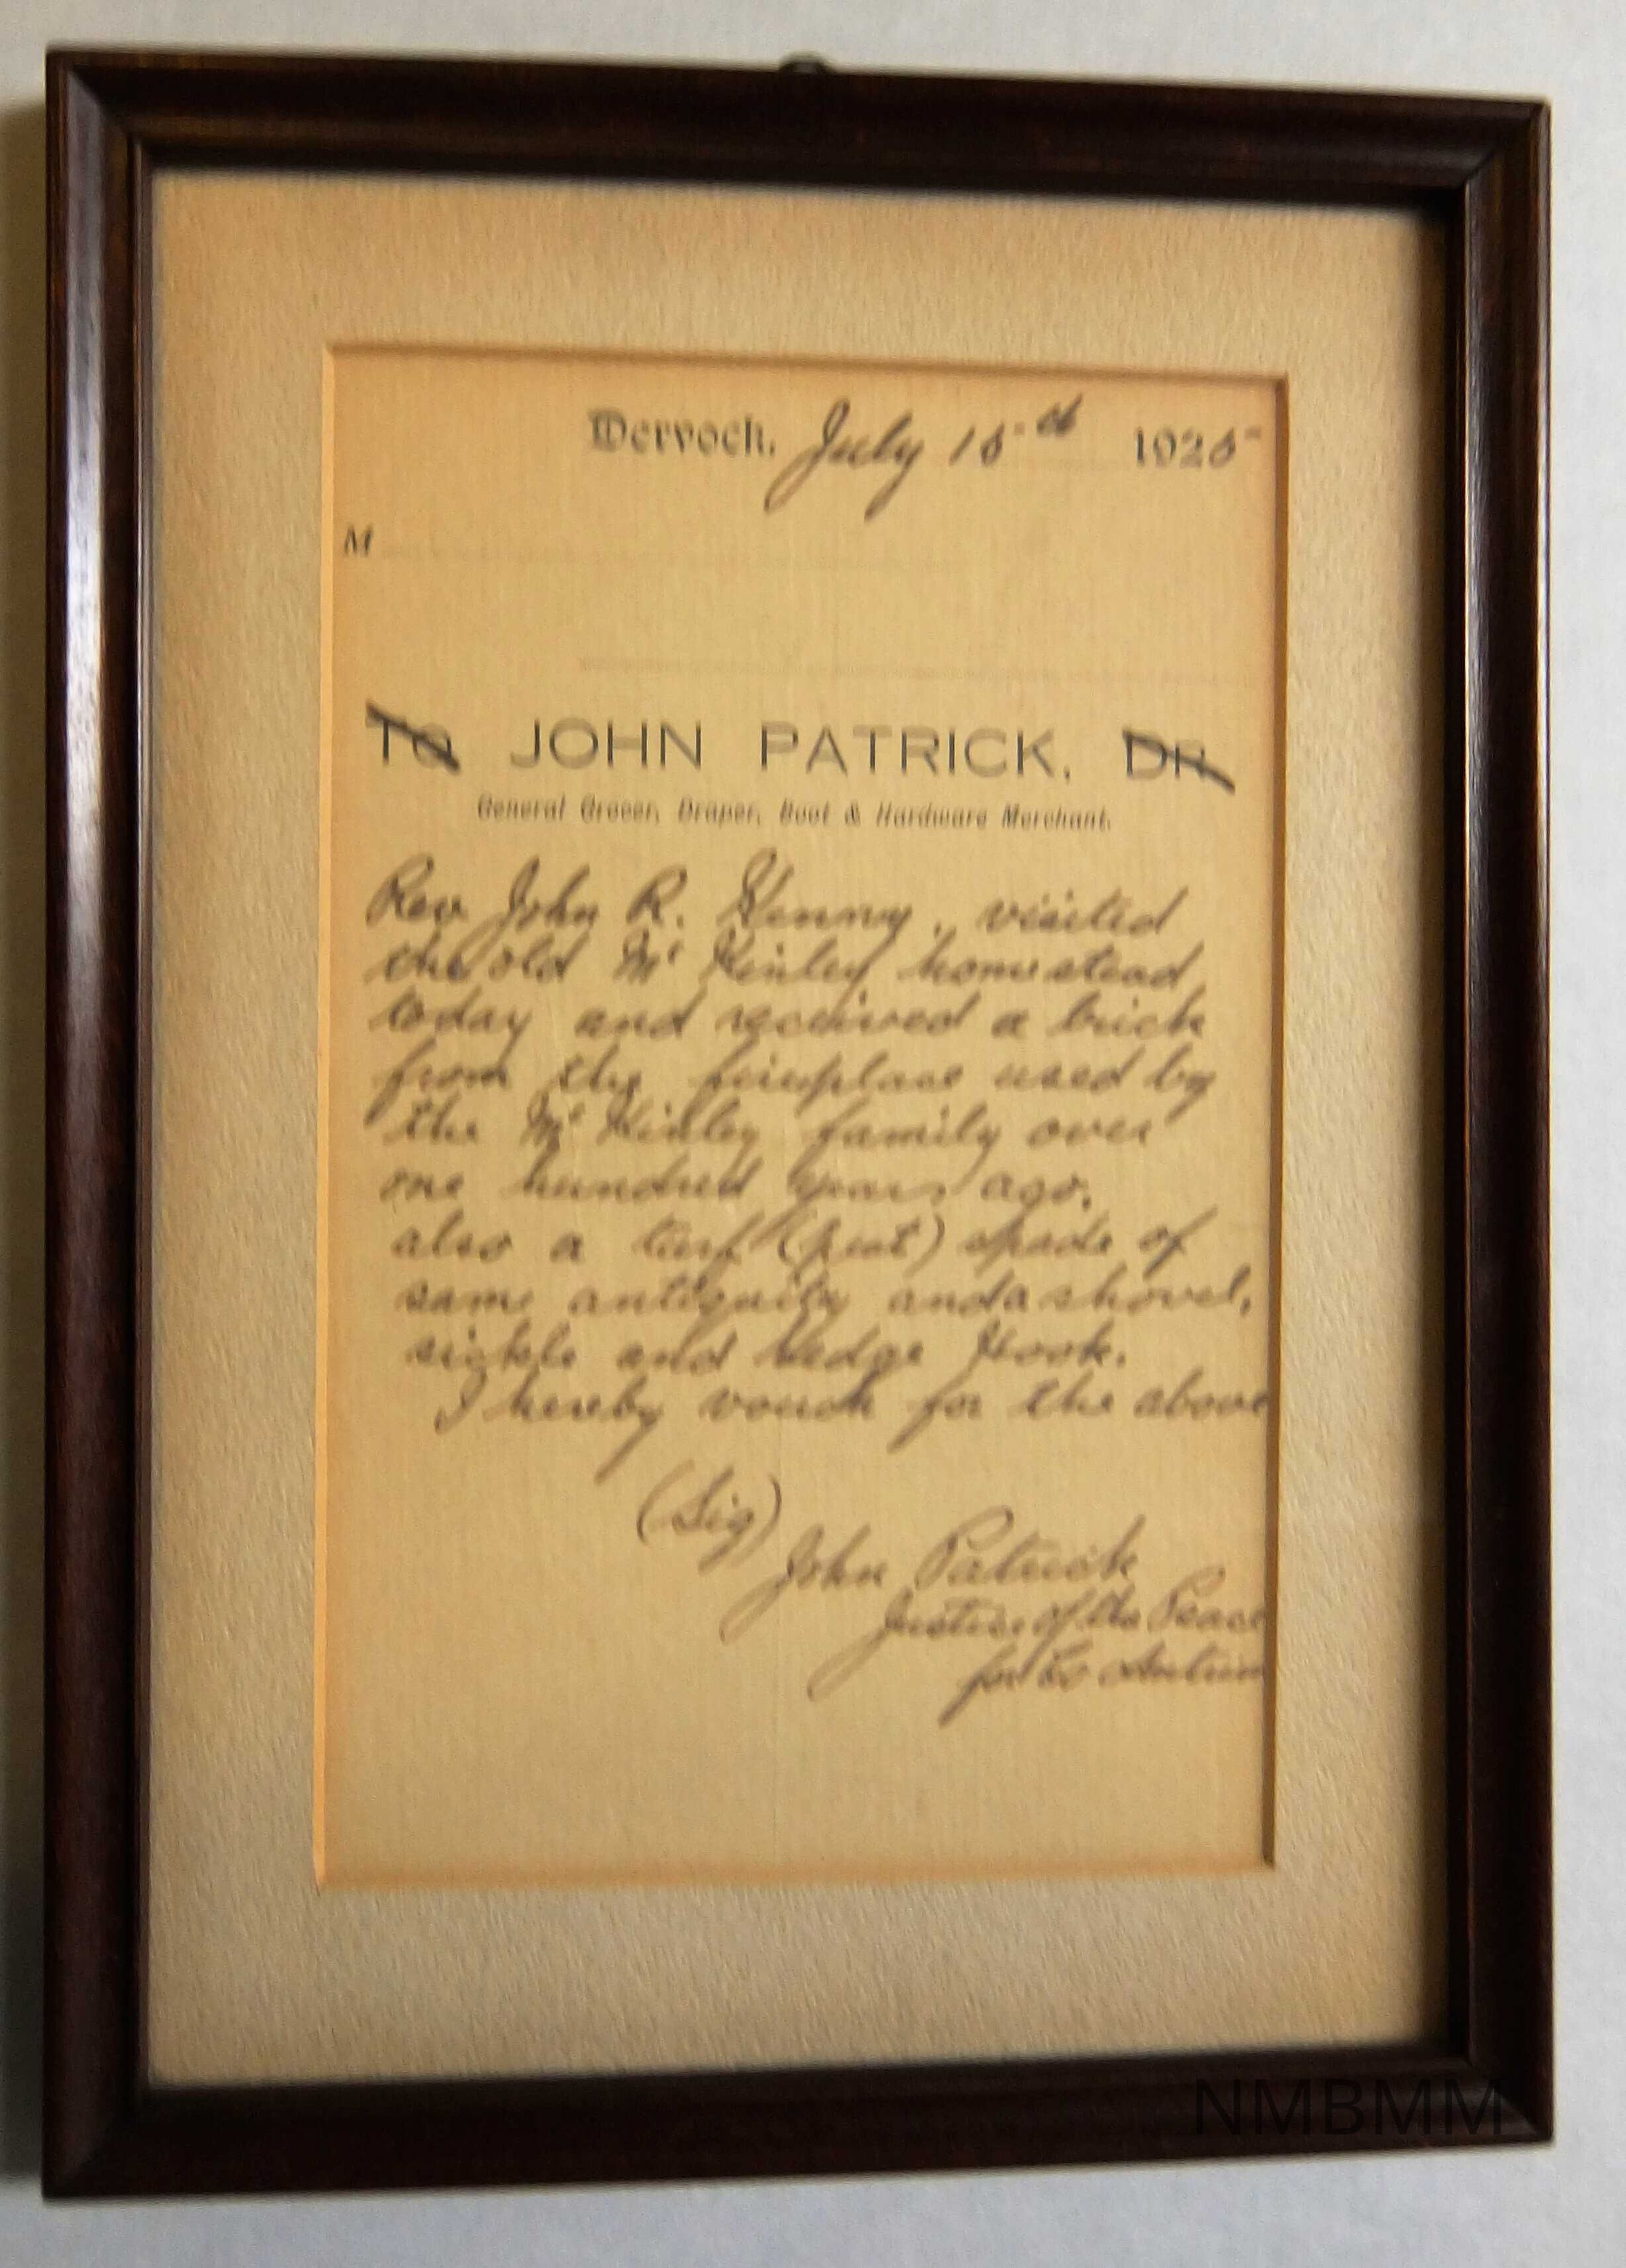 Dervock. July 15th 1925
M
TO JOHN PATRICK, DR
General Grocer, Draper, Boot & Hardware Merchant.
Rev. John R. visited
the old Mc Kinley homestead
today and received a brick
from the fireplace used by
the Mc Kinley family over
one hundred years ago.
also a turf (peat) spade of
same antiquity and a shovel,
sickle and hedge Hook.
I hereby vouch for the above
(Sig)
John Patrick
Justice of the Peace
for Co Antrim
NMBMM